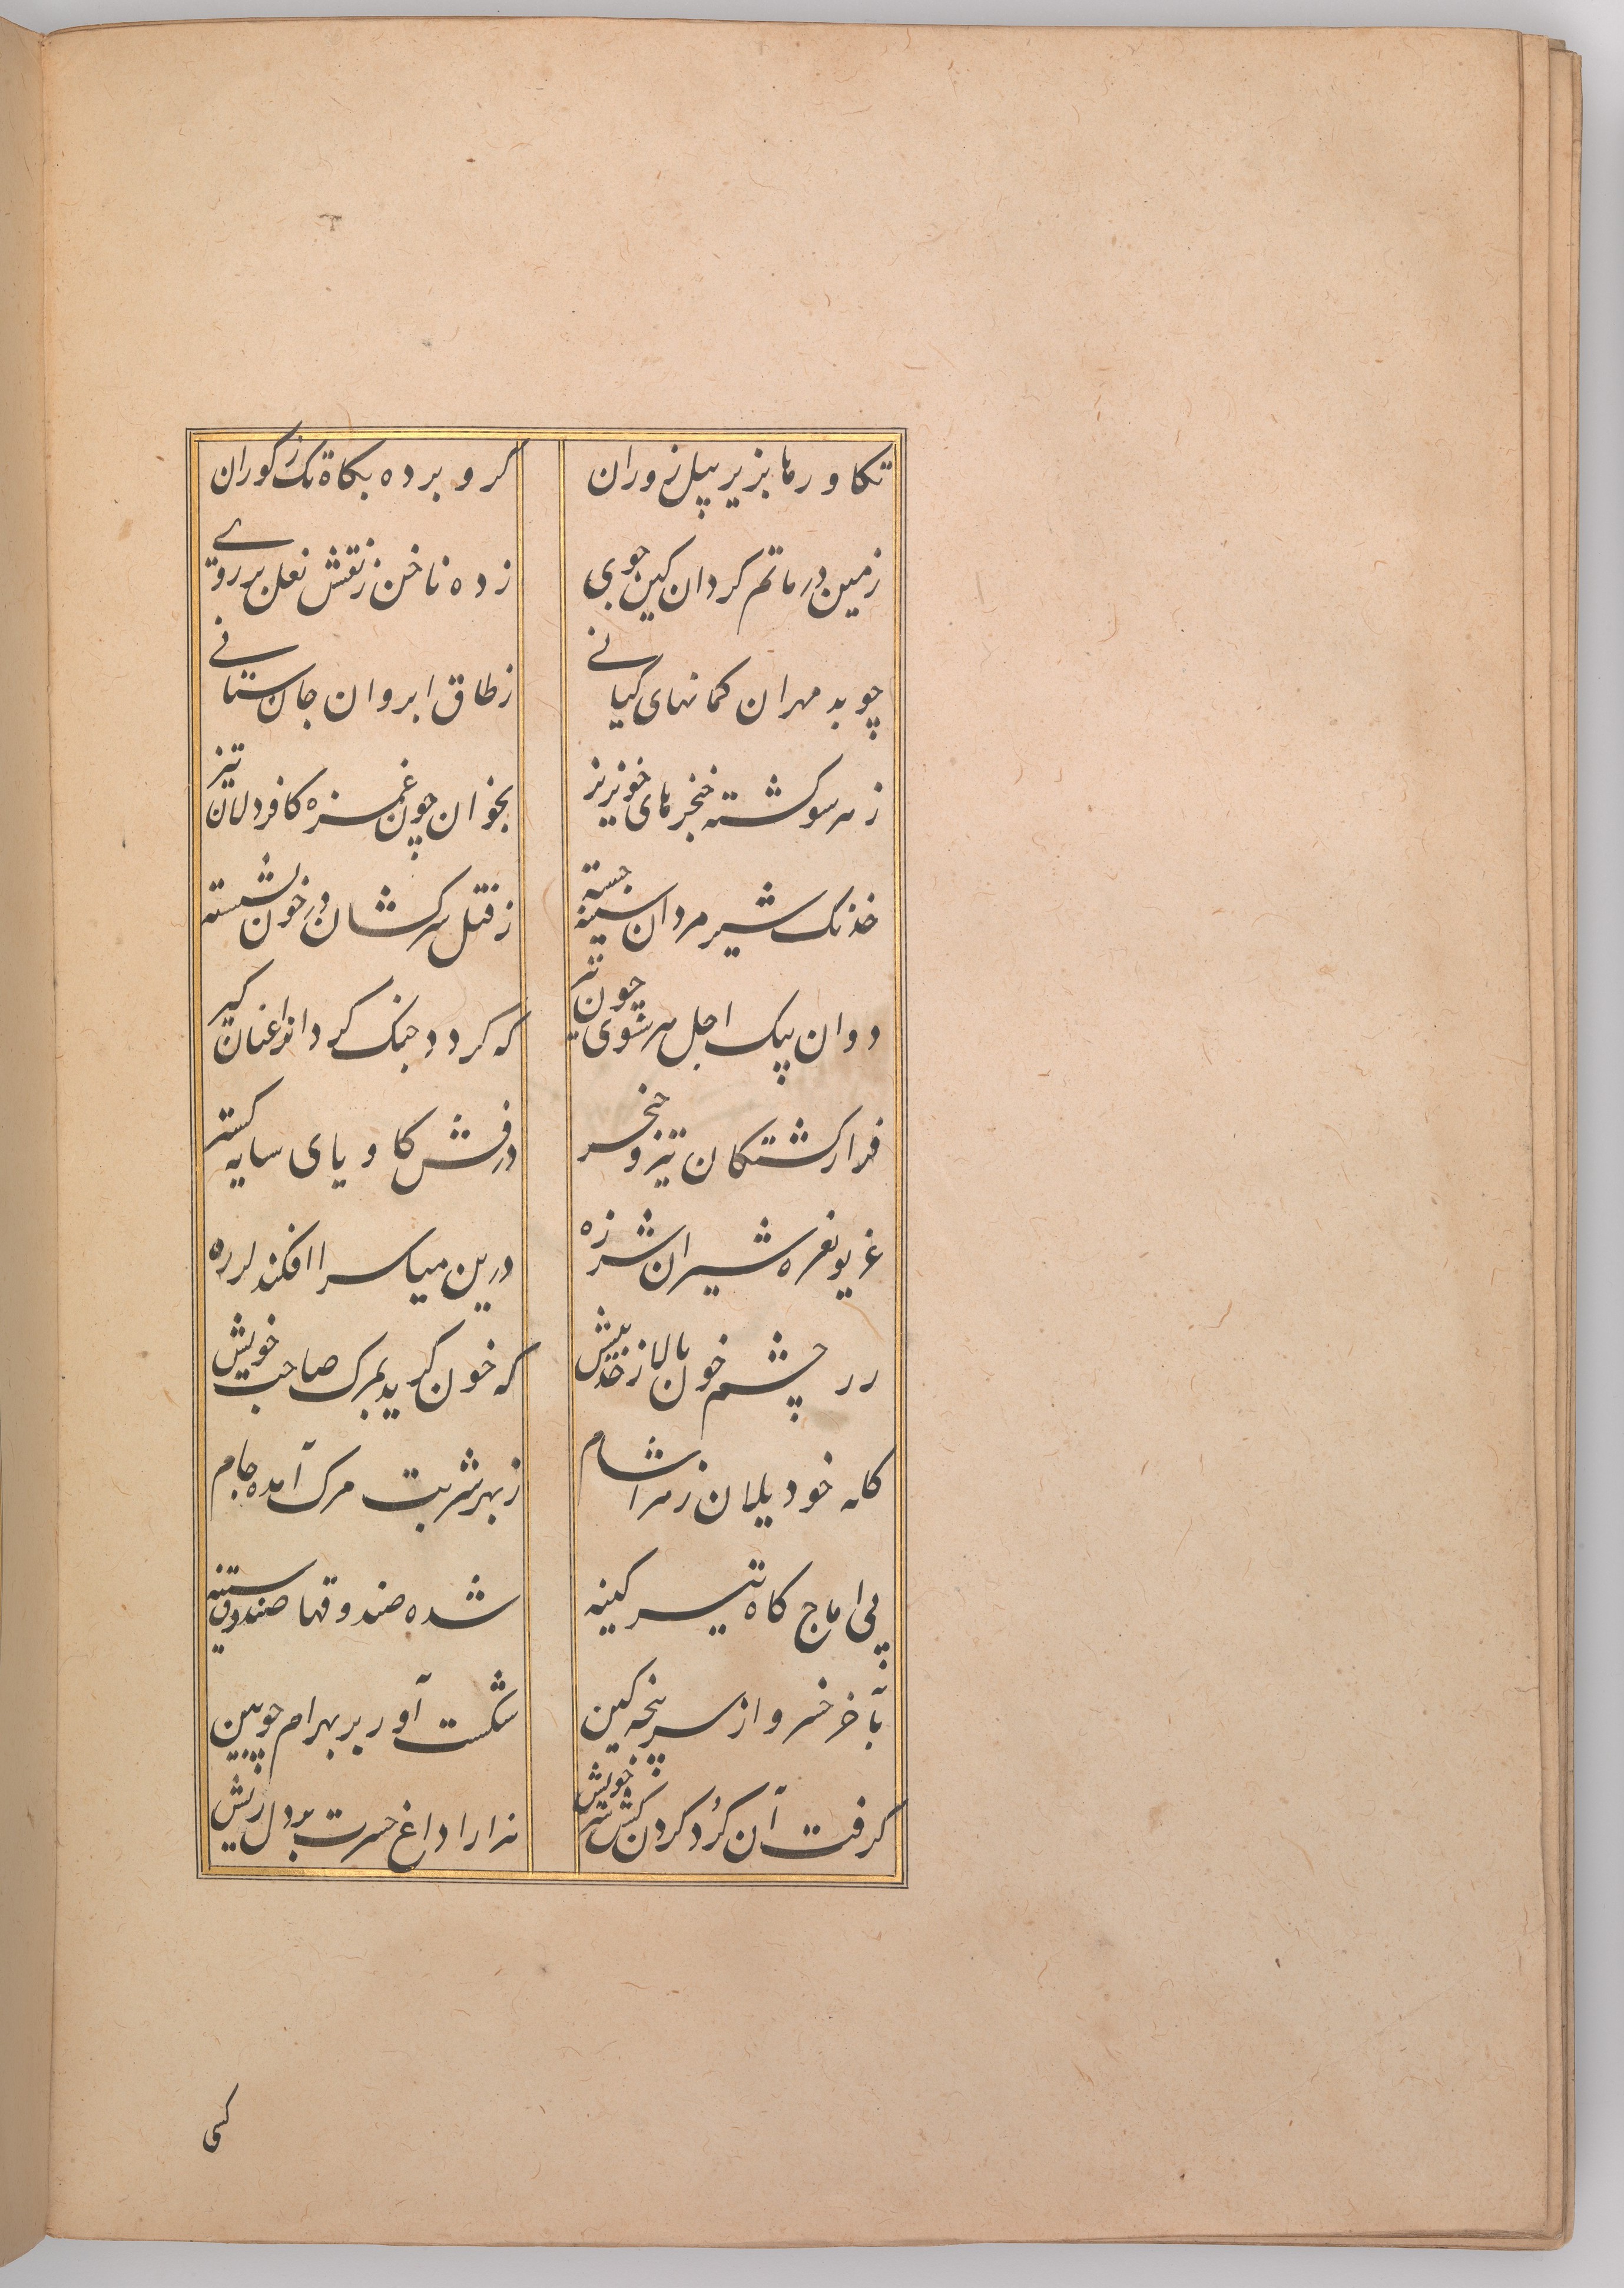 تکاورها بزیر پیل زوران گرو برده بگاه تک ز کوران
زمین در ماتم کردان کین جوی زده ناخن ز نقش نعل بر روی
چو بد مهران کمانهای کیانی ز طاق ابروان جان ستانی
ز هر سو کشته خنجرهای خونریز بخوان چون غمزه کافر دلان تیز
خدنک شیر مردان سینه جسته ز قتل سرکشان در خون نشسته
دوان پیک اجل هر سوی چون تیر که کردد جنک کردانرا عنان کیر
فراز کشتکان تیز و خنجر درفش کاویای سایه کستر
غریو نعره شیران شرزه درین میاسرا افکند لرزه
چشم خون پالا از حد بیش که خون کرید بمرک صاحب خویش
کله خود یلان زهر اشام ز بهر شربت مرک آمده جام
پی اماج کاه تیر کینه شده صندوقها صندوق سینه
بآخر خسرو از سر پنجه کین شکست آور بر بهرام چوبین
کرفت آن کرد کردن کش سر خویش نزارا داغ حسرت بر دل ریش
کسی